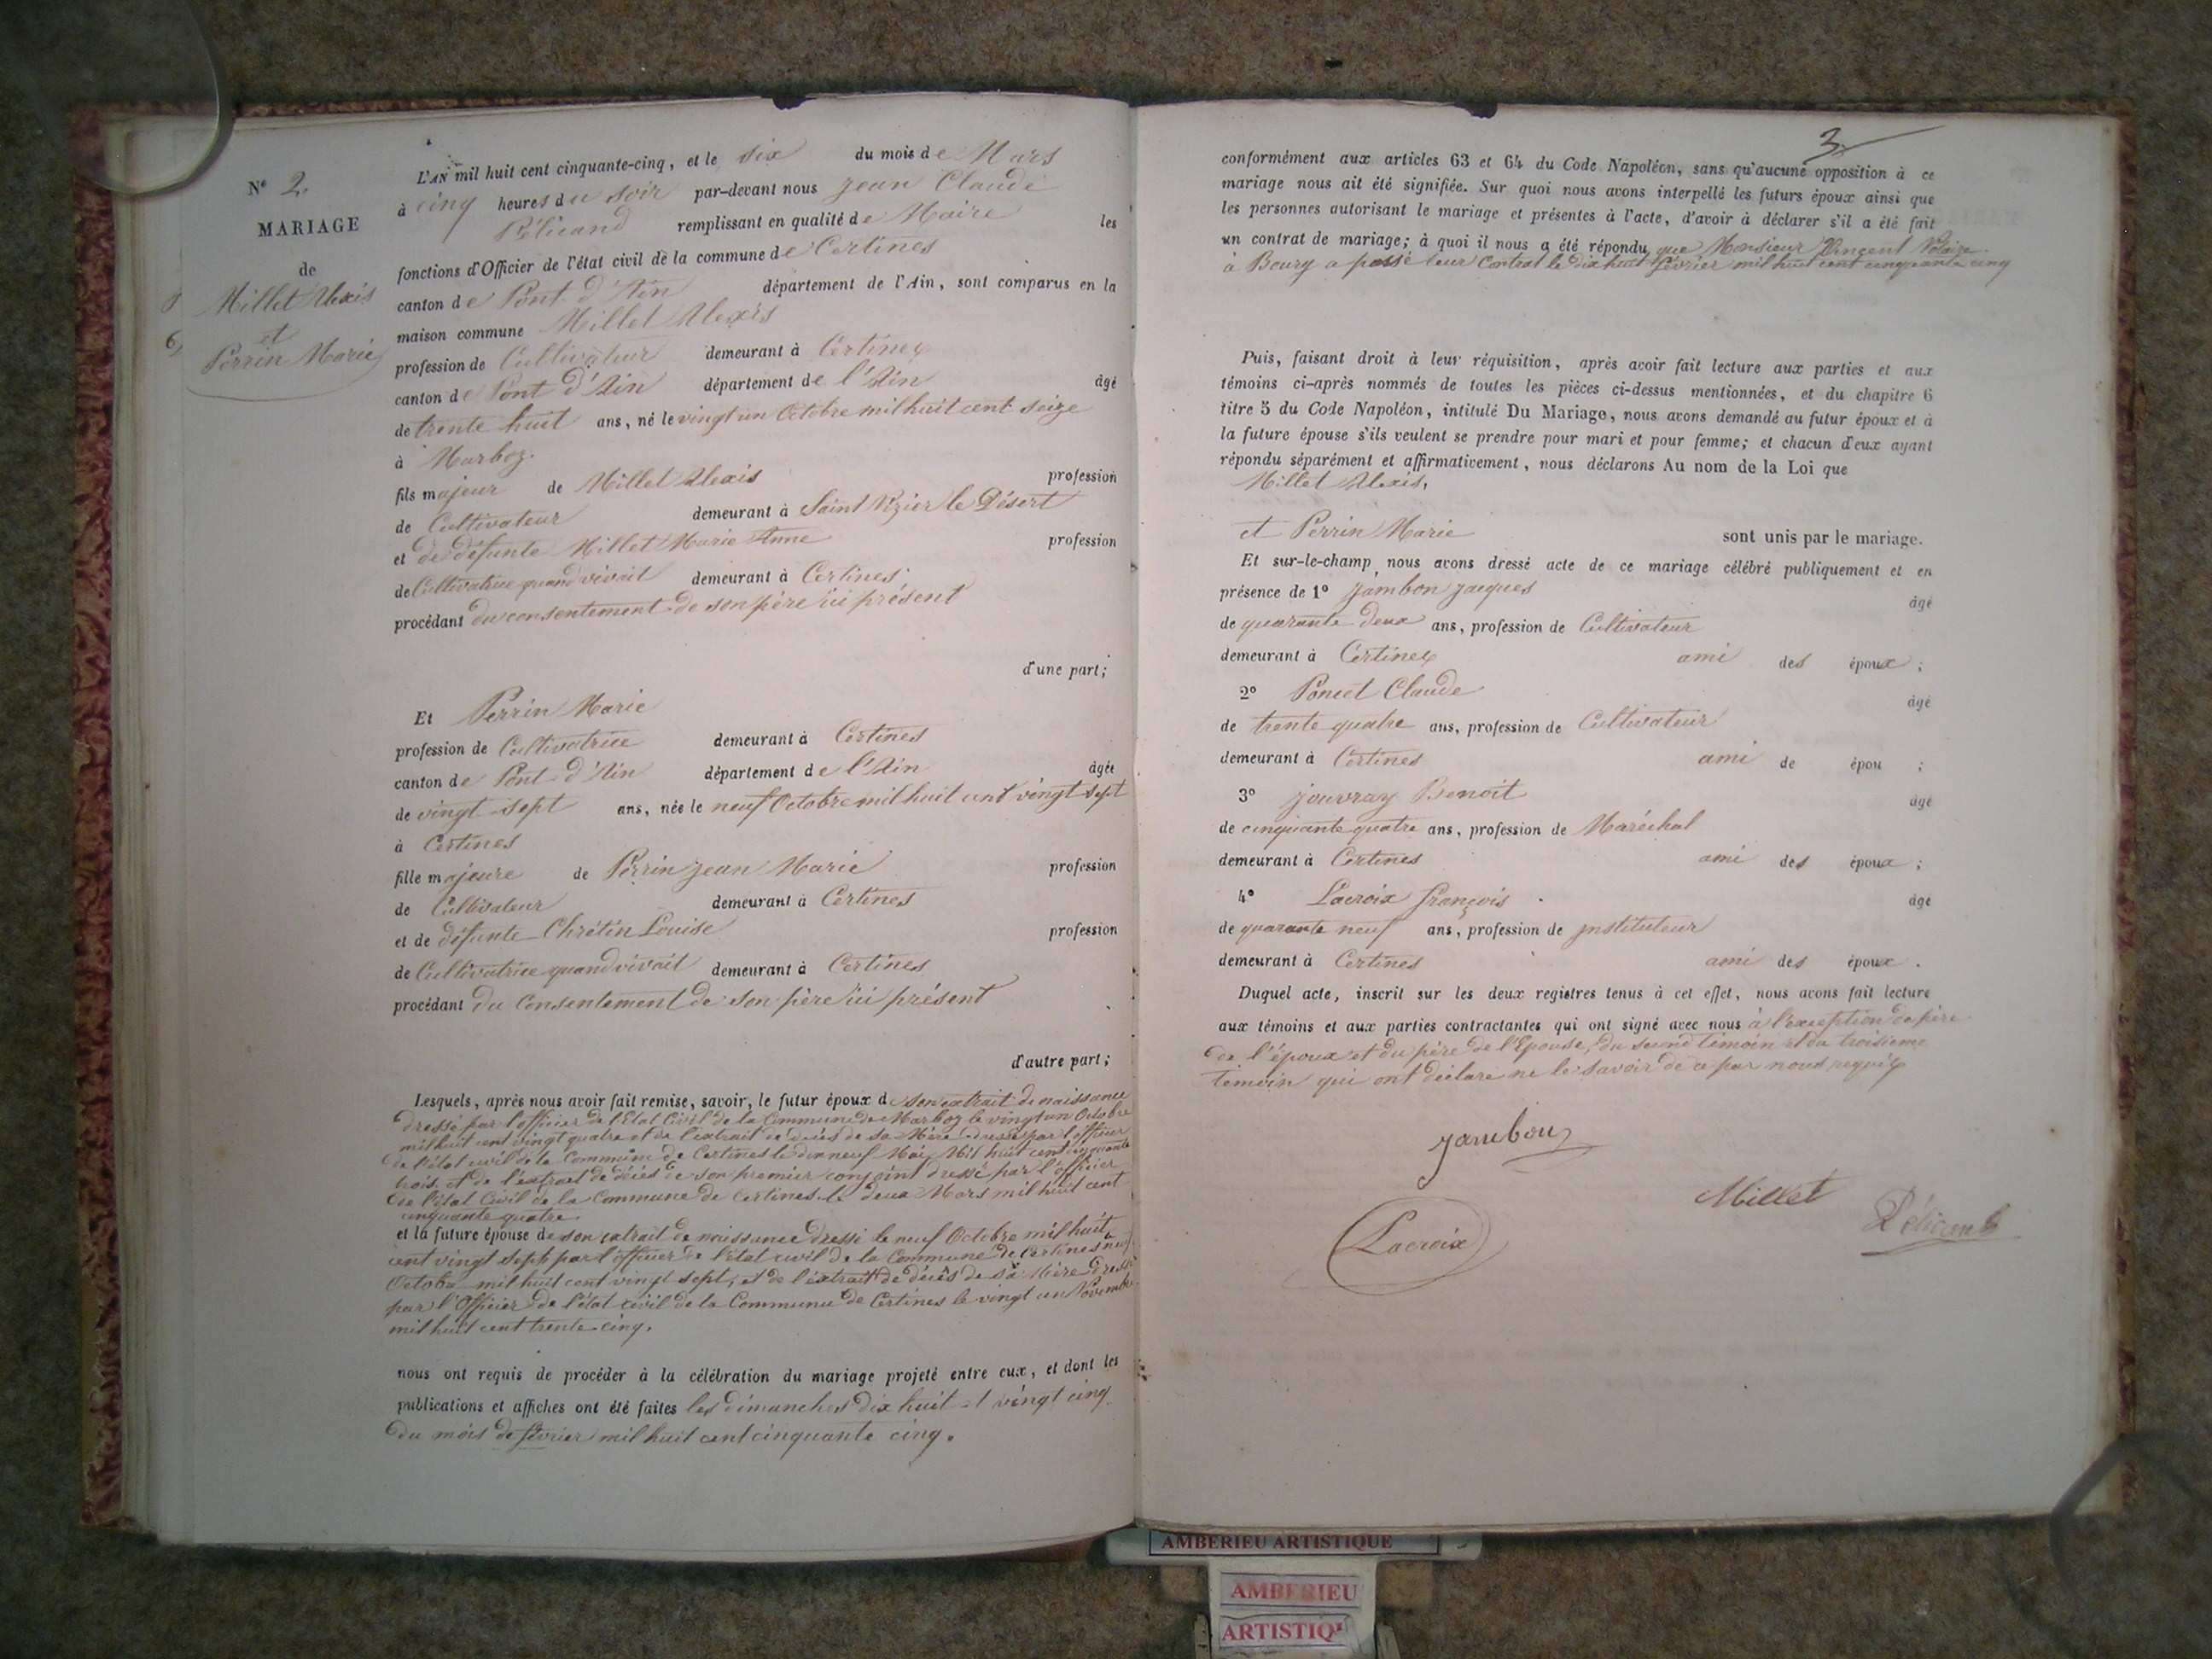 N° 2.
MARIAGE
de
Millet Alexis
et
Perrin Marie
L'AN mil huit cent cinquante-cinq, et le six du mois de Mars
à cinq heures du soir par-devant nous jean Claude
Pélicand remplissant en qualité de Maire les
fonctions d'Officier de l'état civil de la commune de Certines
canton de Pont d'Ain département de l'Ain, sont comparus en la
maison commune Millet Alexis
profession de Cultivateur demeurant à Certines
canton de Pont d'Ain département de l'Ain âgé
de trente huit ans, né le vingt un Octobre mil huit cent seize
à Marboz.
fils majeur de Millet Alexis profession
de Cultivateur demeurant à Saint Nizier le Désert
et de défunte Millet Marie Anne profession
de Cultivatrice quand vivait demeurant à Certines
procédant du consentement de son père ici présent
d'une part;
Et Perrin Marie
profession de Cultivatrice demeurant à Certines
canton de Pont d'Ain département de l'Ain âgée
de vingt sept ans, née le neuf Octobre mil huit cent vingt sept
à Certines
fille majeure de Perrin jean Marie profession
de Cultivateur demeurant à Certines
et de défunte Chrétin Louise profession
de Cultivatrice quand vivait demeurant à Certines
procédant du Consentement de son père ici présent
d'autre part;
Lesquels, après nous avoir fait remise, savoir, le futur époux de son extrait de naissance
dressé par l'officier de l'Etat Civil de la Commune de Marboz le vingt un Octobre
mil huit cent vingt quatre et de l'extrait de décès de sa Mère dressé par l'officier
de l'état civil de la Commune de Certines le dix neuf Mai Mil huit cent cinquante
trois et de l'extrait de décès de son premier conjoint dressé par l'officier
de l'état Civil de la Commune de Certines le deux Mars mil huit cent
cinquante quatre.
et la future épouse de son extrait de naissance dressé le neuf Octobre mil huit
cent vingt sept par l'officier de l'état civil de la Commune de Certines neuf
Octobre mil huit cent vingt sept, et de l'extrait de décès de sa Mère dressé
par l'Officier de l'état civil de la Commune de Certines le vingt un Novembre
mil huit cent trente cinq.
nous ont requis de procéder à la célébration du mariage projeté entre eux, et dont les
publications et affiches ont été faites les dimanches dix huit et vingt cinq
du mois de février mil huit cent cinquante cinq.
3.
conformément aux articles 63 et 64 du Code Napoléon, sans qu'aucune opposition à ce
mariage nous ait été signifiée. Sur quoi nous avons interpellé les futurs époux ainsi que
les personnes autorisant le mariage et présentes à l'acte, d'avoir à déclarer s'il a été fait
un contrat de mariage; à quoi il nous a été répondu que Monsieur Vincent Notaire
à Bourg a passé leur Contrat le dix huit février mil huit cent cinquante cinq
Puis, faisant droit à leur réquisition, après avoir fait lecture aux parties et aux
témoins ci-après nommés de toutes les pièces ci-dessus mentionnées, et du chapitre 6
titre 5 du Code Napoléon, intitulé Du Mariage, nous avons demandé au futur époux et à
la future épouse s'ils veulent se prendre pour mari et pour femme; et chacun d'eux ayant
répondu séparément et affirmativement, nous déclarons Au nom de la Loi que
Millet Alexis,
et Perrin Marie sont unis par le mariage.
Et sur-le-champ, nous avons dressé acte de ce mariage célébré publiquement et en
présence de 1° Jambon jacques âgé
de quarante deux ans, profession de Cultivateur
demeurant à Certines ami des époux ;
2° Poncet Claude âgé
de trente quatre ans, profession de Cultivateur
demeurant à Certines ami de épou ;
3° jouvray Benoit âgé
de cinquante quatre ans, profession de Maréchal
demeurant à Certines ami des époux ;
4° Lacroix françois âgé
de quarante neuf ans, profession de jnstituteur
demeurant à Certines ami des époux .
Duquel acte, inscrit sur les deux registres tenus à cet effet, nous avons fait lecture
aux témoins et aux parties contractantes qui ont signé avec nous à l'exception du père
de l'époux et du père de l'Epouse, du second témoin et du troisieme
temoin qui ont déclaré ne le savoir de ce par nous requis
Jambon
Millet
Pélicand
Lacroix
AMBERIEU ARTISTIQUE
AMBERIEU
ARTISTIQ